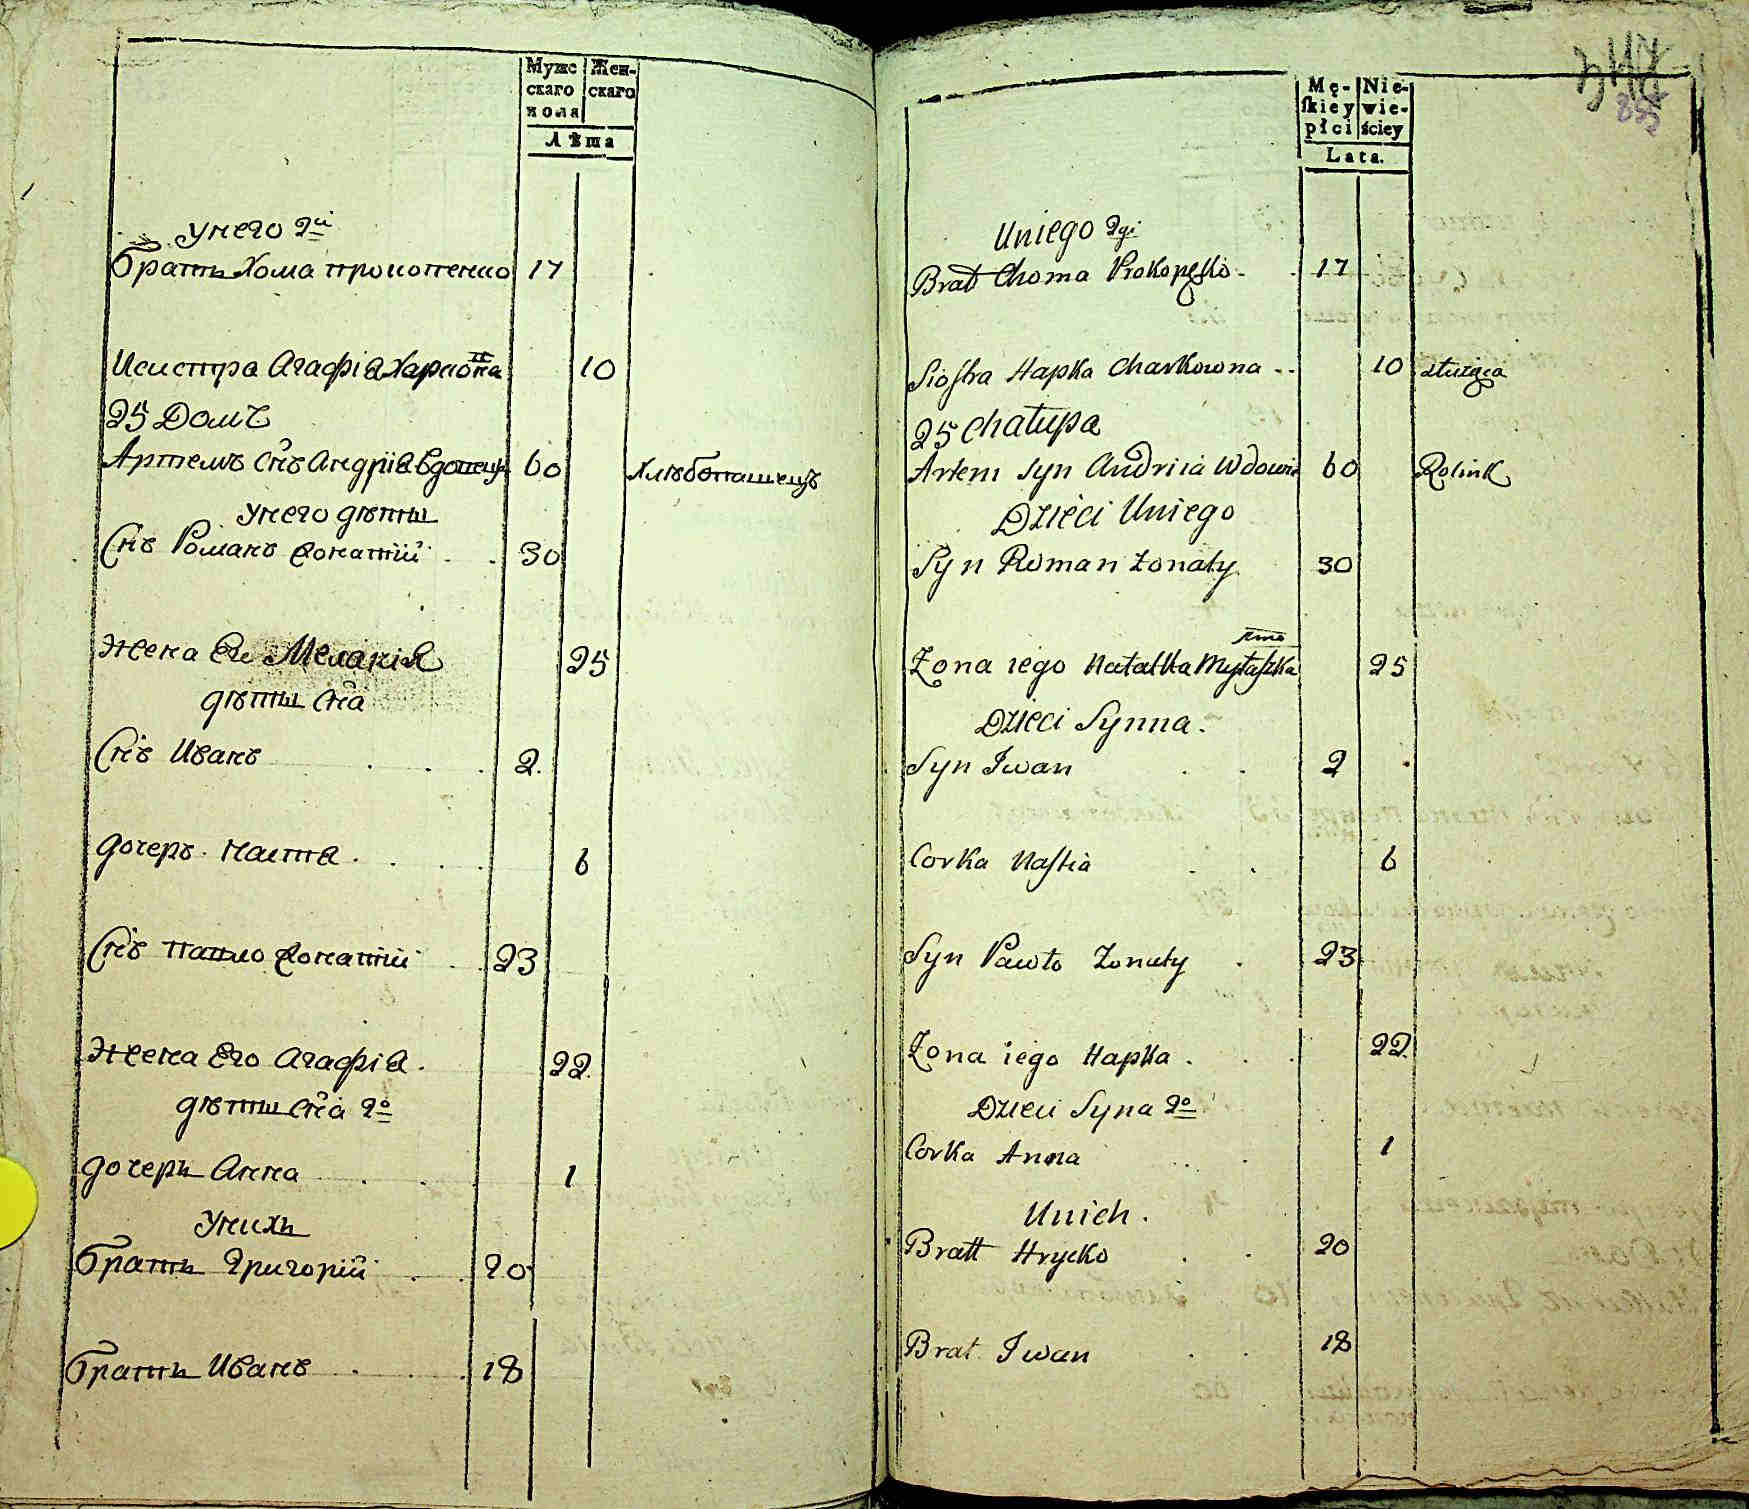 Мужс Жен-
скаго скаго
пола
Лѣта
Унего 2й
братъ Хома прокопенко 17
Исистра Агафія Харковна 10
25 Домъ
Артемъ Снъ Андрія Вдовецъ 60 Хлѣбопашецъ
Унего дѣтъи
Снъ Романъ Жонатій 30
Жена Ег Меланія 25
дѣти Сна
Снъ Иванъ 2
дочеръ Настя 6
Снъ Павло Жонатій 23
Жена Его Агафія 22
дѣти Сна 2о
дочерь Анна 1
Унихъ
братъ Григорій 20
братъ Иванъ 18
Mę- Nie-
ſkiey wie-
płci ściey
Lata.
Uniego 2gi
Brat Choma Prokopęko 17
Sioſtra Hapka Charkowna 10 służąca
25 Chałupa
Artem Syn Andriia Wdowiec 60 Rolink
Dzieci Uniego
Syn Roman żonaty 30
Żona iego Natalka 25
Dzieci Synna.
Syn Iwan 2
Corka Naſtia 6
Syn Pawło Żonaty 23
Żona iego Hapka 22
Dzieci Syna 2o
Corka Anna 1
Unich.
Bratt Hrycko 20
Brat Iwan 18